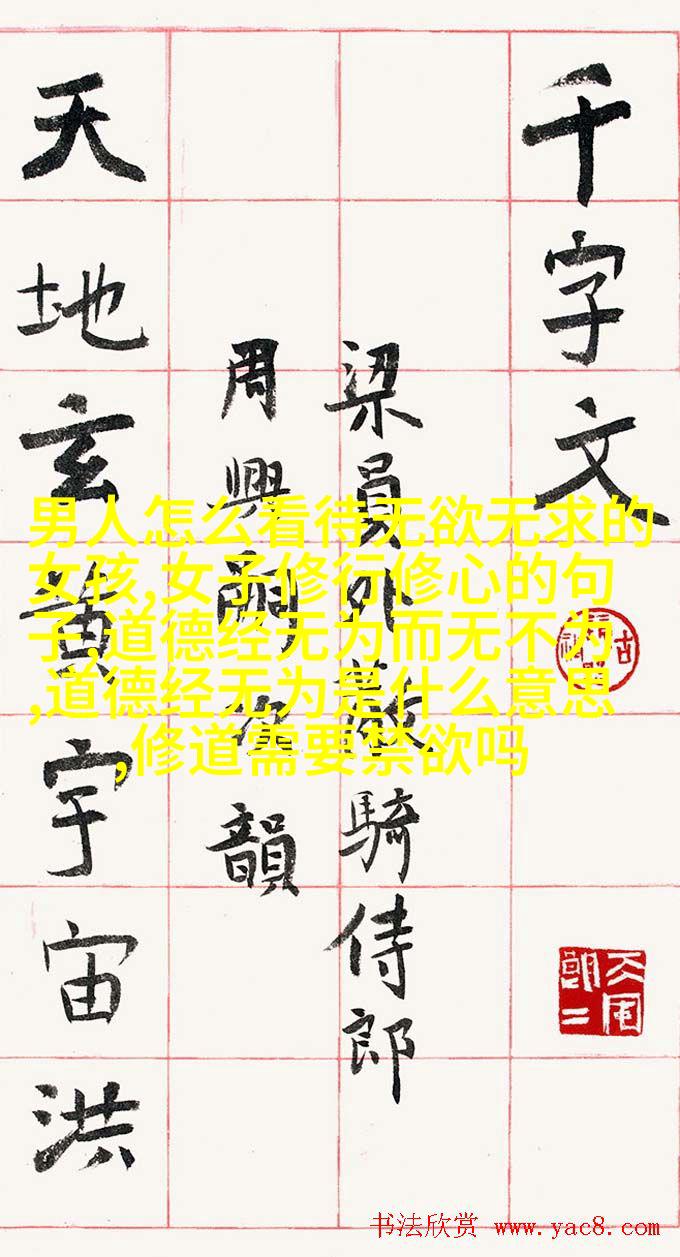 千字文
梁員外散騎侍郎
周興嗣次韻
天地玄黄宇宙洪
男人怎么看待无欲无求的
女孩,女子修行修心的句
子,道德经无为而无不为
,道德经无为是什么意思
,修道需要禁欲吗
书法欣赏 www.yac8.com